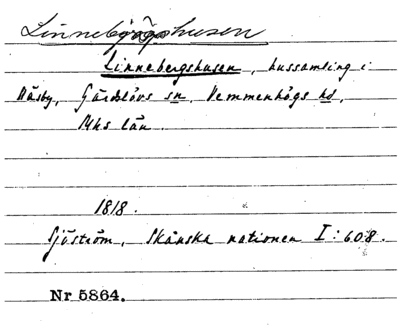 Linnebjörgshusen
Linnebergshusen, hussamling i
Näsby, Gärdslövs sn, Vemmenhögs hd,
Mhs län.
1818.
Sjöström, Skånska nationen I:608.
Nr 5864.